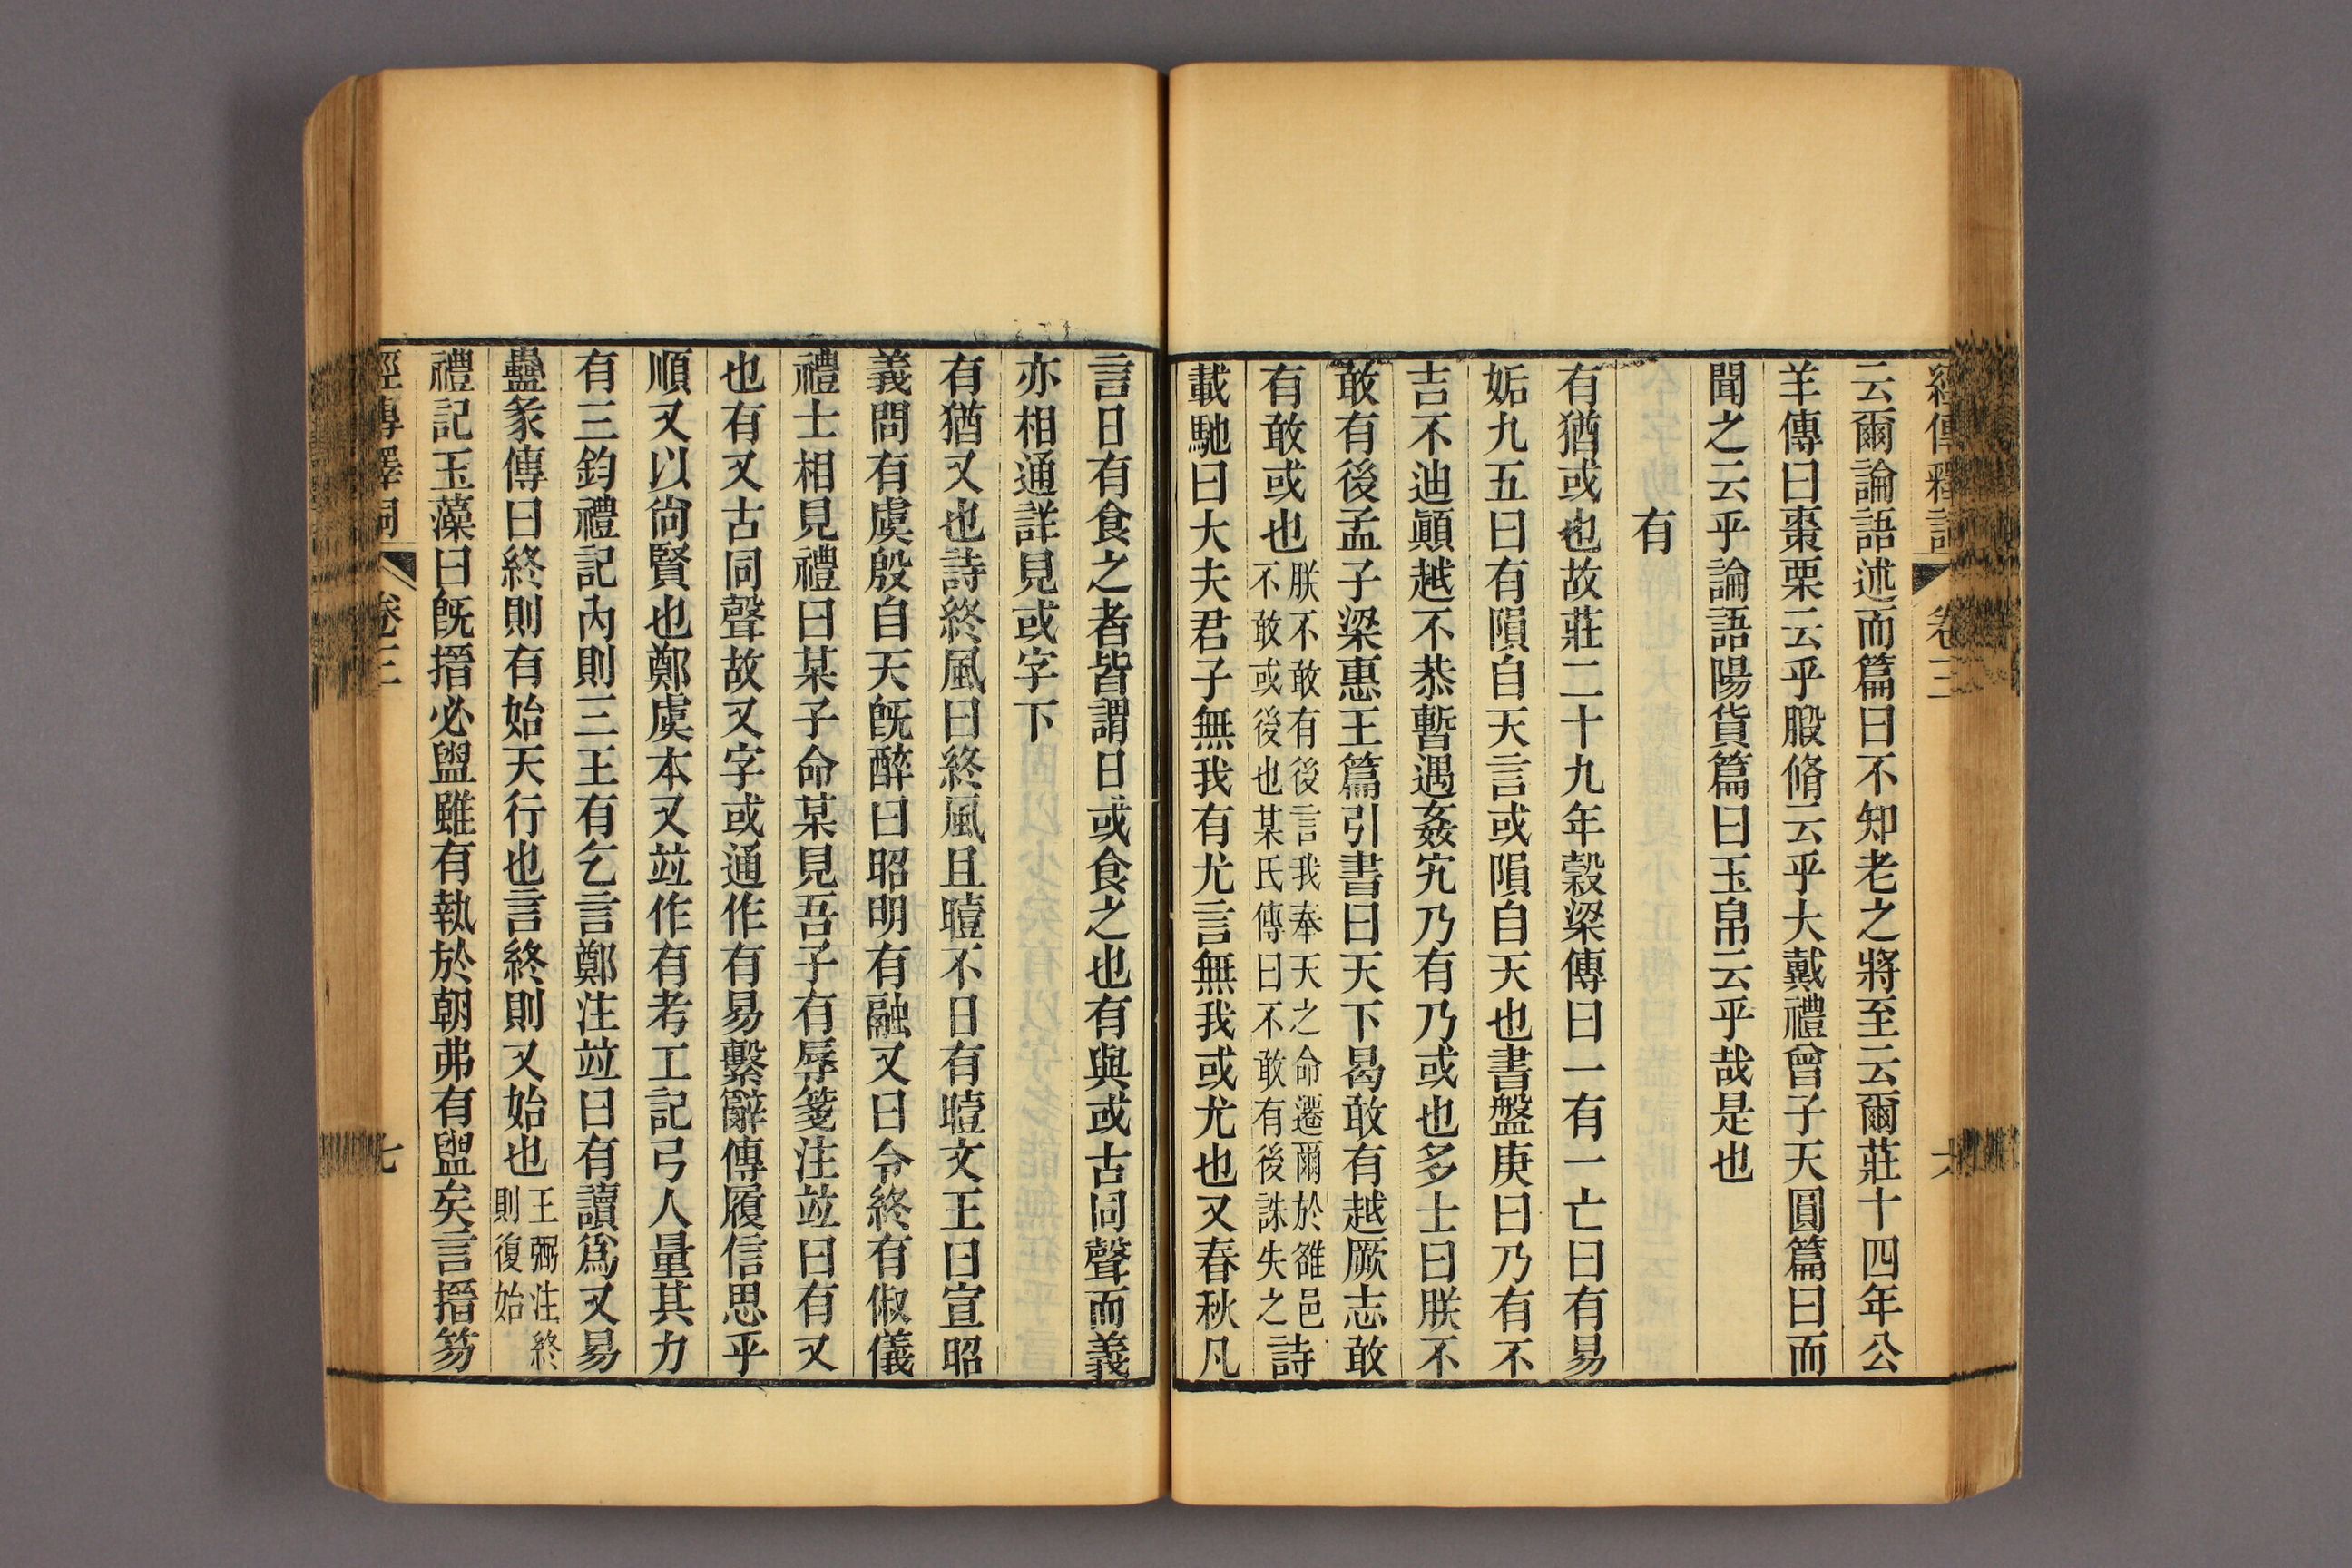 經傳釋詞 卷三 六
云爾論語述而篇曰不知老之將至云爾莊十四年公
羊傳曰棗栗云乎腶脩云乎大戴禮曾子天圓篇曰而
聞之云乎論語陽貨篇曰玉帛云乎哉是也
有
有猶或也故莊二十九年穀梁傳曰一有一亡曰有易
姤九五曰有隕自天言或隕自天也書盤庚曰乃有不
吉不迪顚越不恭暫遇姦宄乃有乃或也多士曰朕不
敢有後孟子梁惠王篇引書曰天下曷敢有越厥志敢
有敢或也朕不敢有後言我奉天之命遷爾於雒邑不敢或後也某氏傳曰不敢有後誅失之詩
載馳曰大夫君子無我有尤言無我或尤也又春秋凡
言日有食之者皆謂日或食之也有與或古同聲而義
亦相通詳見或字下
有猶又也詩終風曰終風且曀不日有曀文王曰宣昭
義問有虞殷自天旣醉曰昭明有融又曰令終有俶儀
禮士相見禮曰某子命某見吾子有辱箋注竝曰有又
也有又古同聲故又字或通作有易繫辭傳履信思乎
順又以尙賢也鄭虞本又竝作有考工記弓人量其力
有三鈞禮記內則三王有乞言鄭注竝曰有讀爲又易
蠱彖傳曰終則有始天行也言終則又始也王弼注終則復始
禮記玉藻曰旣搢必盥雖有執於朝弗有盥矣言搢笏
經傳釋詞 卷三 七